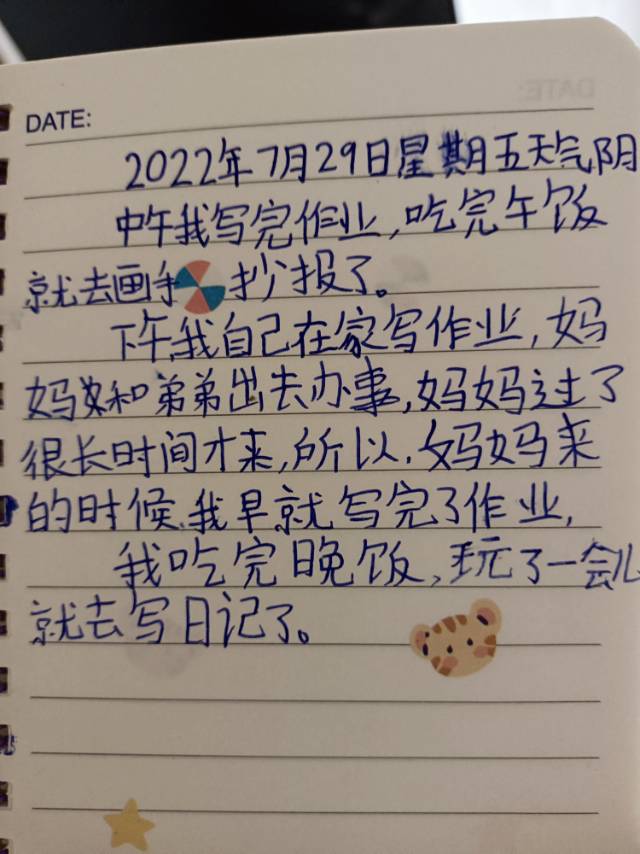 DATE:
2022年7月29日星期五天气阴
中午我写完作业,吃完午饭
就去画手抄报了。
下午,我自己在家写作业,妈
妈和弟弟出去办事,妈妈过了
很长时间才来,所以,妈妈来
的时候,我早就写完了作业,
我吃完晚饭,玩了一会儿
就去写日记了。